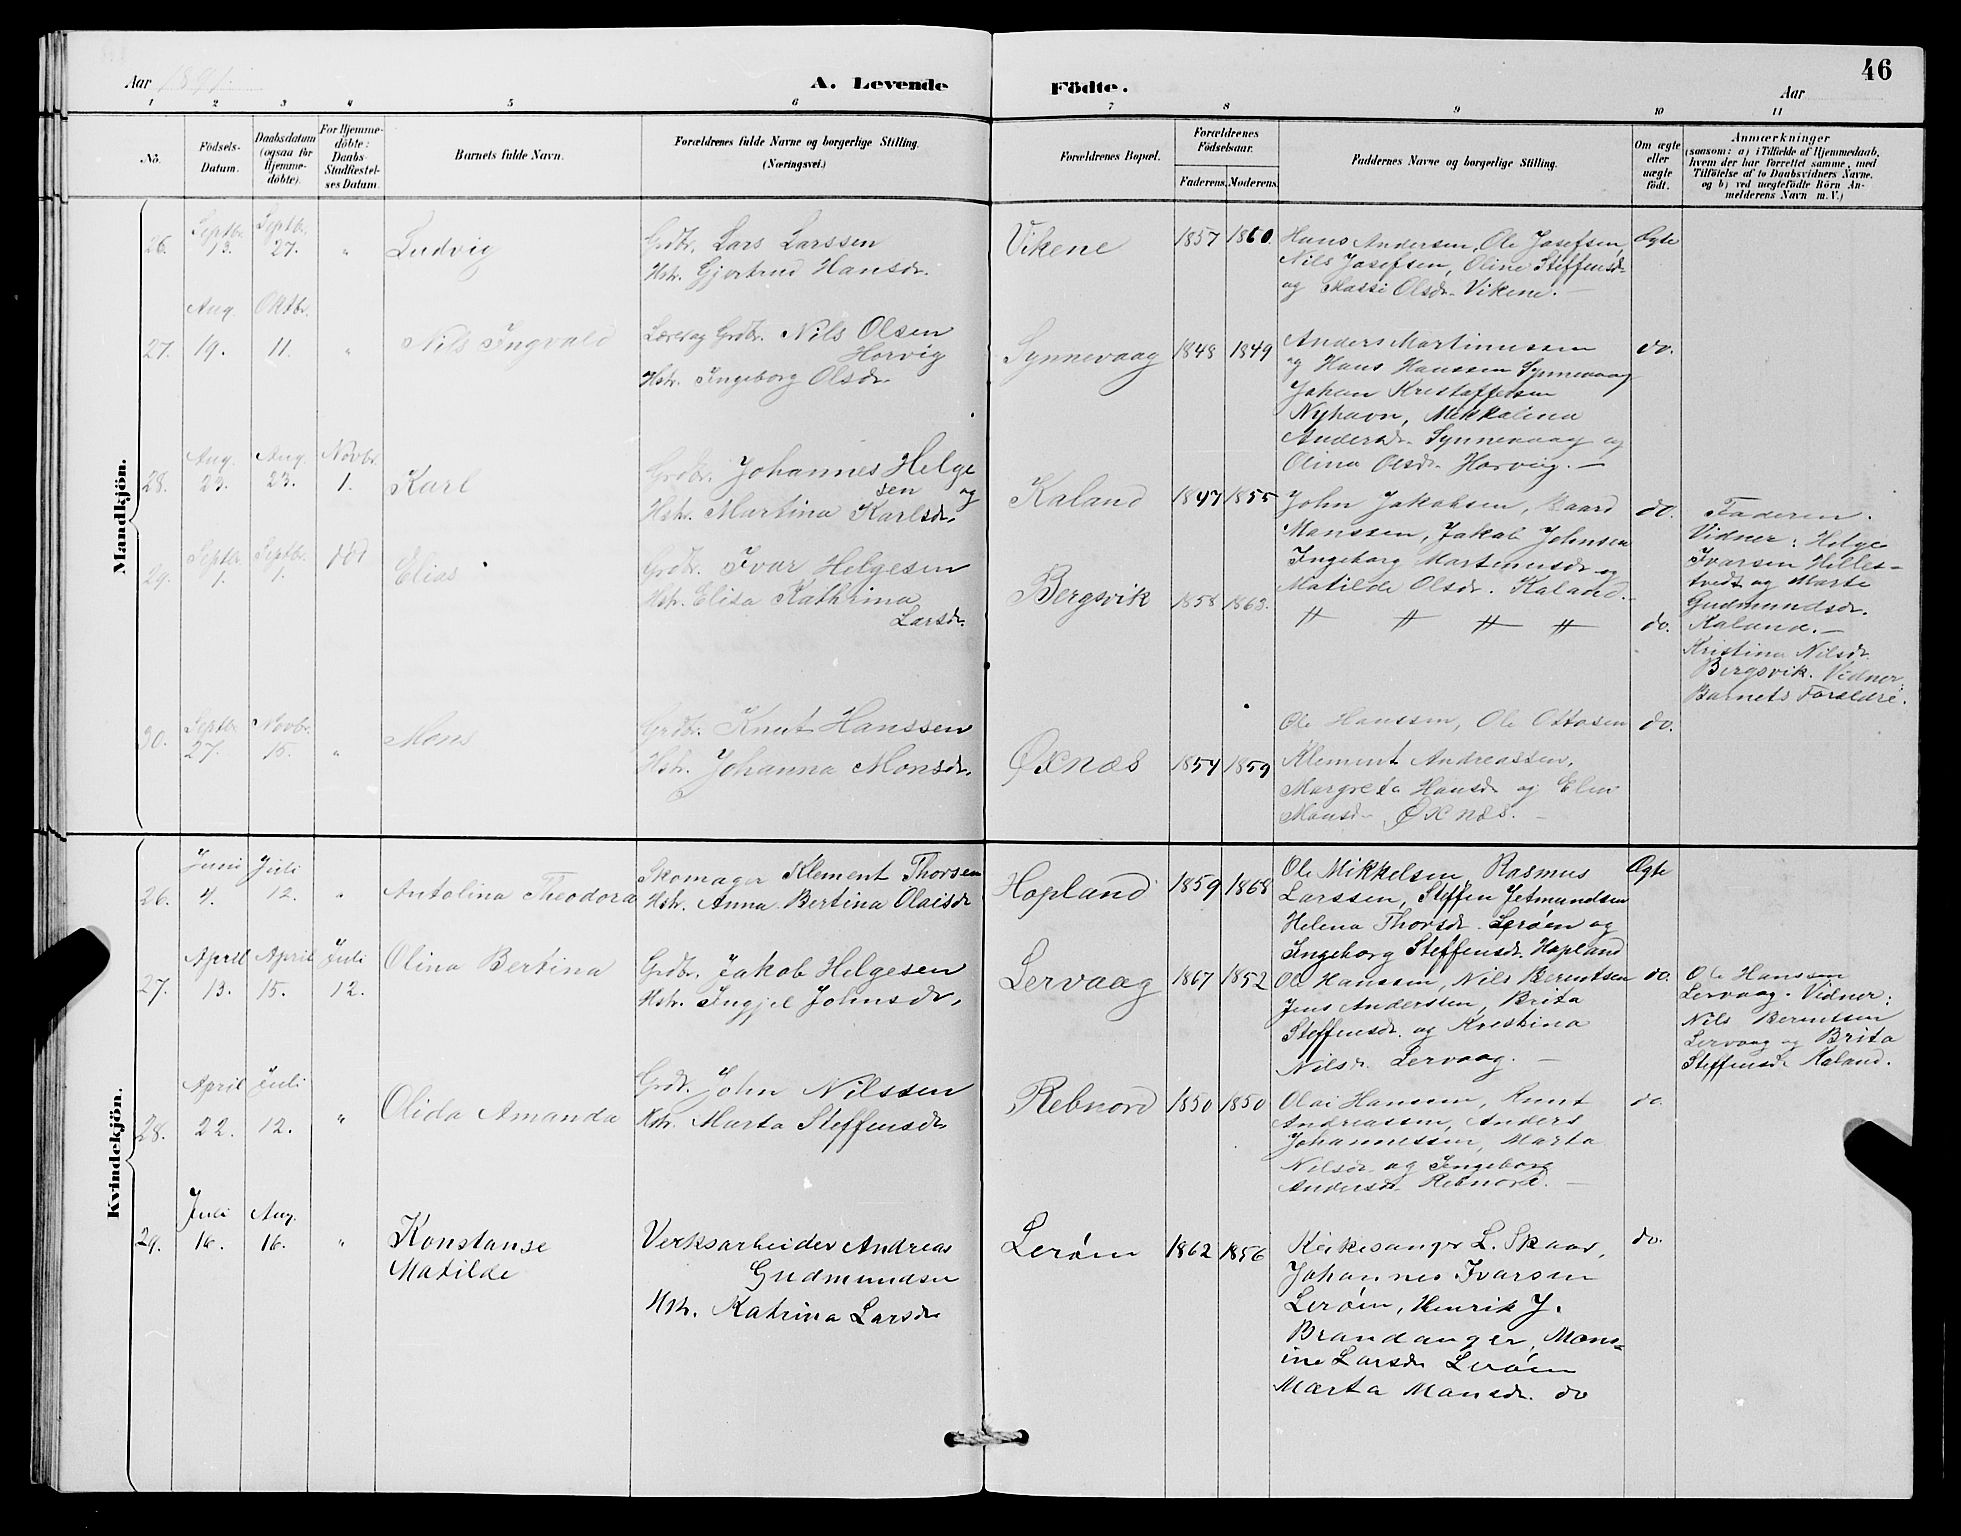 46
Aar 1891. A. Levende Födte. Aar
1 2 3 4 5 6 7 8 9 10 11
No. Födsels-Datum. Daabsdatum (ogsaa for Hjemmedöbte). For Hjemmedöbte: Daabs-Stadfæstelses Datum. Barnets fulde Navn. Forældrenes fulde Navne og borgerlige Stilling. (Næringsvei.) Forældrenes Bopæl. Forældrenes Födselsaar. Faderens. Moderens. Faddernes Navne og borgerlige Stilling. Om ægte eller uægte födt. Anmærkninger (saasom: a) i Tilfælde af Hjemmedaab, hvem der har forrettet samme, med Tilföielse af to Daabsvidners Navne, og b) ved uægtefödte Börn Anmelderens Navn m. V.)
Mandkjön.
26. Septbr. 13. Septbr. 27. " Ludvig
Grdbr. Lars Larssen
Hstr. Gjertrud Hansdr.
Vikene 1857 1860.
Hans Andersen, Ole Josefsen,
Nils Josefsen, Oline Steffensd.
og Massi Olsdr. Vikene. —
Ægte
27. Aug. 19. Oktbr. 11. " Nils Ingvald
Lærer og Grdbr. Nils Olsen
Horvig
Hstr. Ingeborg Olsdr.
Synnevaag 1848 1849
Anders Martinussen
og Hans Hanssen Synnevaag
Johan Kristoffersen
Nyhavn, Mikkalina
Andersd. Synnevaag og
Olina Olsdr. Horvig. —
do.
28. Aug. 23. Aug. 23. Novbr. 1. Karl
Grdbr. Johannes Helge
sen og
Hstr. Martina Karlsdr.
Kaland 1847 1855
John Jakobsen, Baard
Monssen, Jakob Johnsen
Ingeborg Martinusdr. og
Matilde Olsdr. Kaland.
do.
Faderen.
Vidner: Helge
Ivarsen Hilles-
tvedt og Marte
Gudmundsdr.
Kaland. —
29. Septbr. 1. Septbr. 1. död Elias
Grdbr. Ivar Helgesen
Hstr. Elisa Kathrina
Larsdr.
Bergsvik 1858 1863.
" " " "
do.
Kristina Nilsdr.
Bergsvik. Vidner:
Barnets Forældre.
30. Septbr. 27. Novbr. 15. " Mons
Grdbr. Knut Hanssen
Hstr. Johanna Monsdr.
Øxnæs 1854 1859
Ole Hanssen, Ole Ottosen
Klement Andreassen,
Margreta Hansdr og Elen
Monsdr. Øxnæs. —
do.
Kvindekjön.
26. Juni 4. Juli 12. " Antolina Theodora
Skomager Klement Thorsen
Hstr. Anna Bertina Olaisdr
Hopland 1859 1868
Ole Mikkelsen, Rasmus
Larssen, Steffen Jetmundsen
Helena Thorsdr. Lerøen og
Ingeborg Steffensdr. Hopland
Ægte
27. April 13. April 15. Juli 12. Olina Bertina
Grdbr. Jakob Helgesen
Hstr. Ingjel Johnsdr.
Lervaag 1867 1852
Ole Hanssen, Nils Berentsen
Jens Anderssen, Brita
Steffensdr. og Kristina
Nilsdr. Lervaag. —
do.
Ole Hanssen
Lervaag. Vidner:
Nils Berentsen
Lervaag og Brita
Steffensdr. Kaland.
28. April 22. Juli 12. " Olida Amanda
Grdbr. John Nilssen
Hstr. Marta Steffensdr
Rebnord 1850 1850
Olai Hanssen, Knut
Andreassen, Anders
Johannessen, Marta
Nilsdr. og Ingeborg
Andersdr. Rebnord. —
do.
29. Juli 16. Aug. 16. " Konstanse
Matilde
Verksarbeider Andreas
Gudmundsen
Hstr. Katrina Larsdr
Lerøen 1862 1856
Kirkesanger L. Skaar,
Johannes Ivarsen
Lerøen, Henrik J.
Brandanger, Mons-
ine Larsdr Lerøen
Marta Monsdr. do
do.